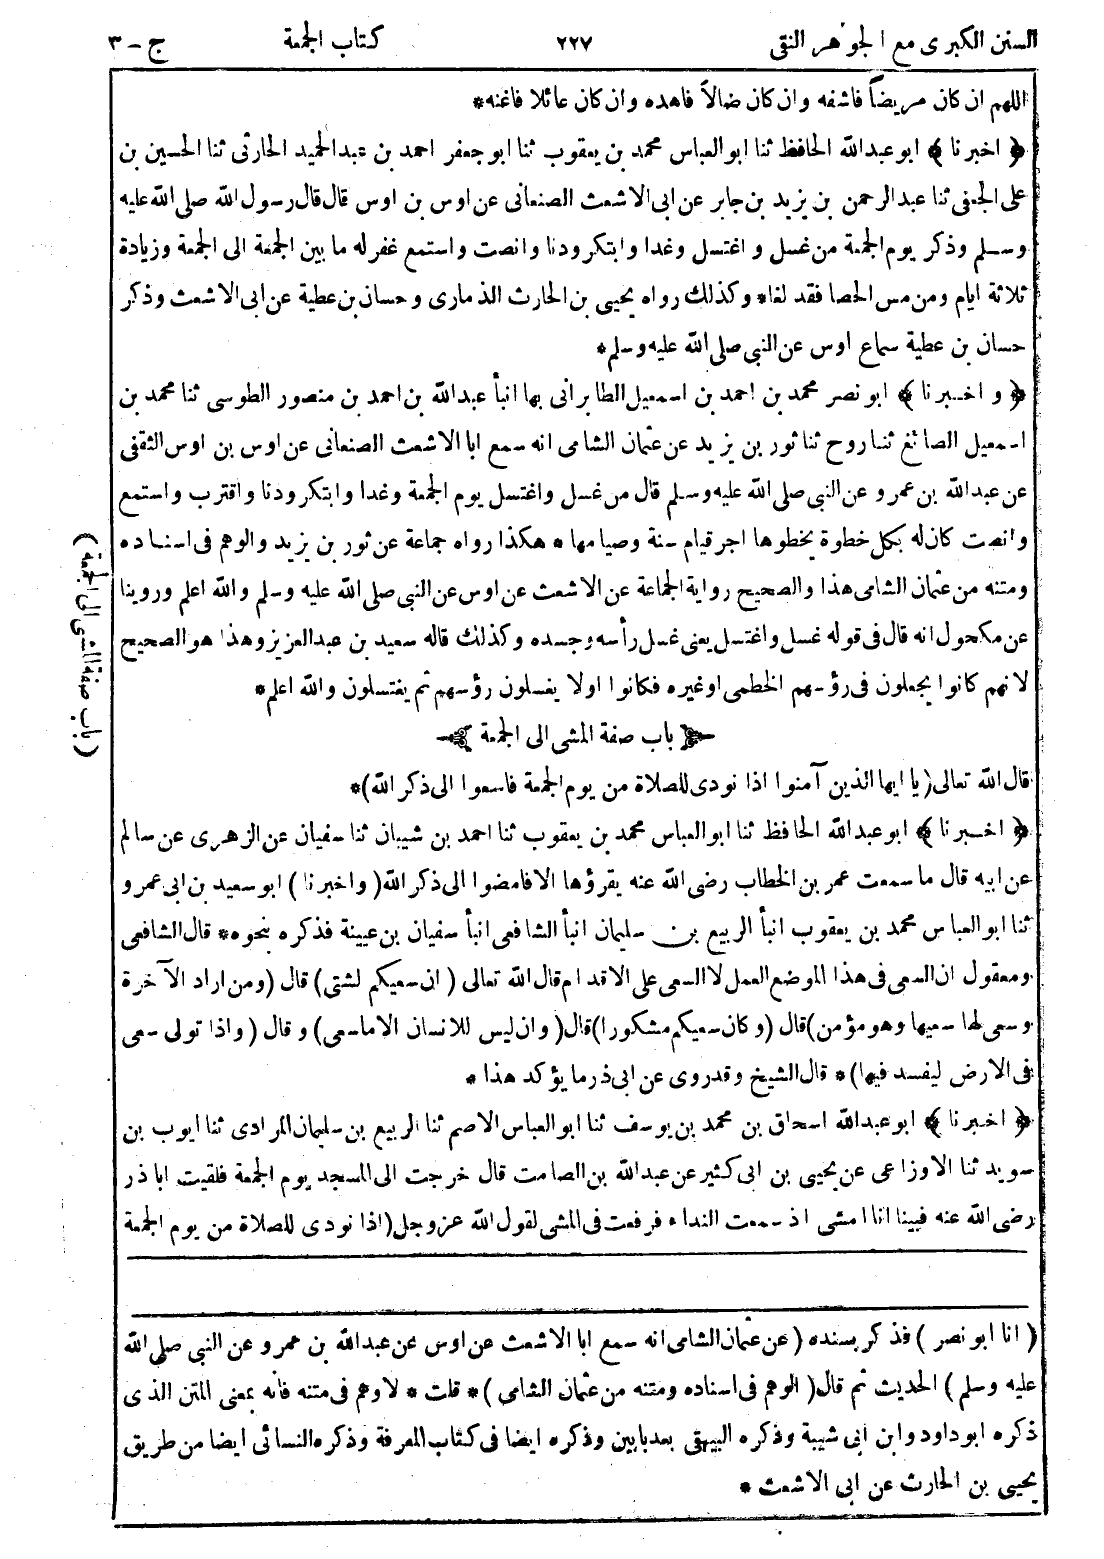 السنن الكبرى مع الجوهر النقى ٢٢٧ كتاب الجمعة ج - ٣
اللهم ان كان مريضاً فاشفه وان كان ضالاً فاهده وان كان عائلا فاغنه*
﴿ اخبرنا ﴾ ابو عبدالله الحافظ ثنا ابو العباس محمد بن يعقوب ثنا ابو جعفر احمد بن عبدالحميد الحارثى ثنا الحسين بن
على الجعفى ثنا عبدالرحمن بن يزيد بن جابر عن ابى الاشعث الصنعانى عن اوس بن اوس قال قال رسول الله صلى الله عليه
وسلم وذكر يوم الجمعة من غسل و اغتسل وغدا وابتكر ودنا وانصت واستمع غفر له ما بين الجمعة الى الجمعة وزيادة
ثلاثة ايام ومن مس الحصا فقد لغا* وكذلك رواه يحيى بن الحارث الذمارى وحسان بن عطية عن ابى الاشعث وذكر
حسان بن عطية سماع اوس عن النبى صلى الله عليه وسلم*
﴿ و اخبرنا ﴾ ابو نصر محمد بن احمد بن اسمعيل الطابرانى بها انبأ عبدالله بن احمد بن منصور الطوسى ثنا محمد بن
اسمعيل الصائغ ثنا روح ثنا ثور بن يزيد عن عثمان الشامى انه سمع ابا الاشعث الصنعانى عن اوس بن اوس الثقفى
عن عبدالله بن عمرو عن النبى صلى الله عليه وسلم قال من غسل واغتسل يوم الجمعة وغدا وابتكر ودنا واقترب واستمع
وانصت كان له بكل خطوة يخطوها اجر قيام سنة وصيامها * هكذا رواه جماعة عن ثور بن يزيد والوهم فى اسناده
ومتنه من عثمان الشامى هذا والصحيح رواية الجماعة عن الاشعث عن اوس عن النبى صلى الله عليه وسلم والله اعلم وروينا
عن مكحول انه قال فى قوله غسل واغتسل يعنى غسل رأسه وجسده وكذلك قاله سعيد بن عبدالعزيز وهذا هو الصحيح
لانهم كانوا يجعلون فى رؤسهم الخطمى او غيره فكانوا اولا يغسلون رؤسهم ثم يغتسلون والله اعلم*
باب صفة المشى الى الجمعة
( باب صفة المشى الى الجمعة )
قال الله تعالى ( يا ايها الذين آمنوا اذا نودى للصلاة من يوم الجمعة فاسعوا الى ذكر الله )*
﴿ اخبرنا ﴾ ابو عبدالله الحافظ ثنا ابو العباس محمد بن يعقوب ثنا احمد بن شيبان ثنا سفيان عن الزهرى عن سالم
عن ابيه قال ما سمعت عمر بن الخطاب رضى الله عنه يقرؤها الا فامضوا الى ذكر الله ( واخبرنا ) ابو سعيد بن ابى عمرو
ثنا ابو العباس محمد بن يعقوب انبأ الربيع بن سليمان انبأ الشافعى انبأ سفيان بن عيينة فذكره بنحوه* قال الشافعى
ومعقول ان السعى فى هذا الموضع العمل لا السعى على الاقدام قال الله تعالى ( ان سعيكم لشتى ) قال ( ومن اراد الآخرة
وسعى لها سعيها وهو مؤمن ) قال ( وكان سعيكم مشكورا ) قال ( وان ليس للانسان الا ما سعى ) و قال ( واذا تولى سعى
فى الارض ليفسد فيها )* قال الشيخ وقد روى عن ابى ذر ما يؤكد هذا *
﴿ اخبرنا ﴾ ابو عبدالله اسحاق بن محمد بن يوسف ثنا ابو العباس الاصم ثنا الربيع بن سليمان المرادى ثنا ايوب بن
سويد ثنا الاوزاعى عن يحيى بن ابى كثير عن عبدالله بن الصامت قال خرجت الى المسجد يوم الجمعة فلقيت اباذر
رضى الله عنه فبينا انا امشى اذ سمعت النداء فرفعت فى المشى لقول الله عزوجل ( اذا نودى للصلاة من يوم الجمعة
( انا ابو نصر ) فذكر بسنده ( عن عثمان الشامى انه سمع ابا الاشعث عن اوس عن عبدالله بن عمرو عن النبى صلى الله
عليه وسلم ) الحديث ثم قال ( الوهم فى اسناده ومتنه من عثمان الشامى )* قلت * لا وهم فى متنه فانه بمعنى المتن الذى
ذكره ابو داود وابن ابى شيبة وذكره البيهقى بعد بابين وذكره ايضا فى كتاب المعرفة وذكره النسائى ايضا من طريق
يحيى بن الحارث عن ابى الاشعث *